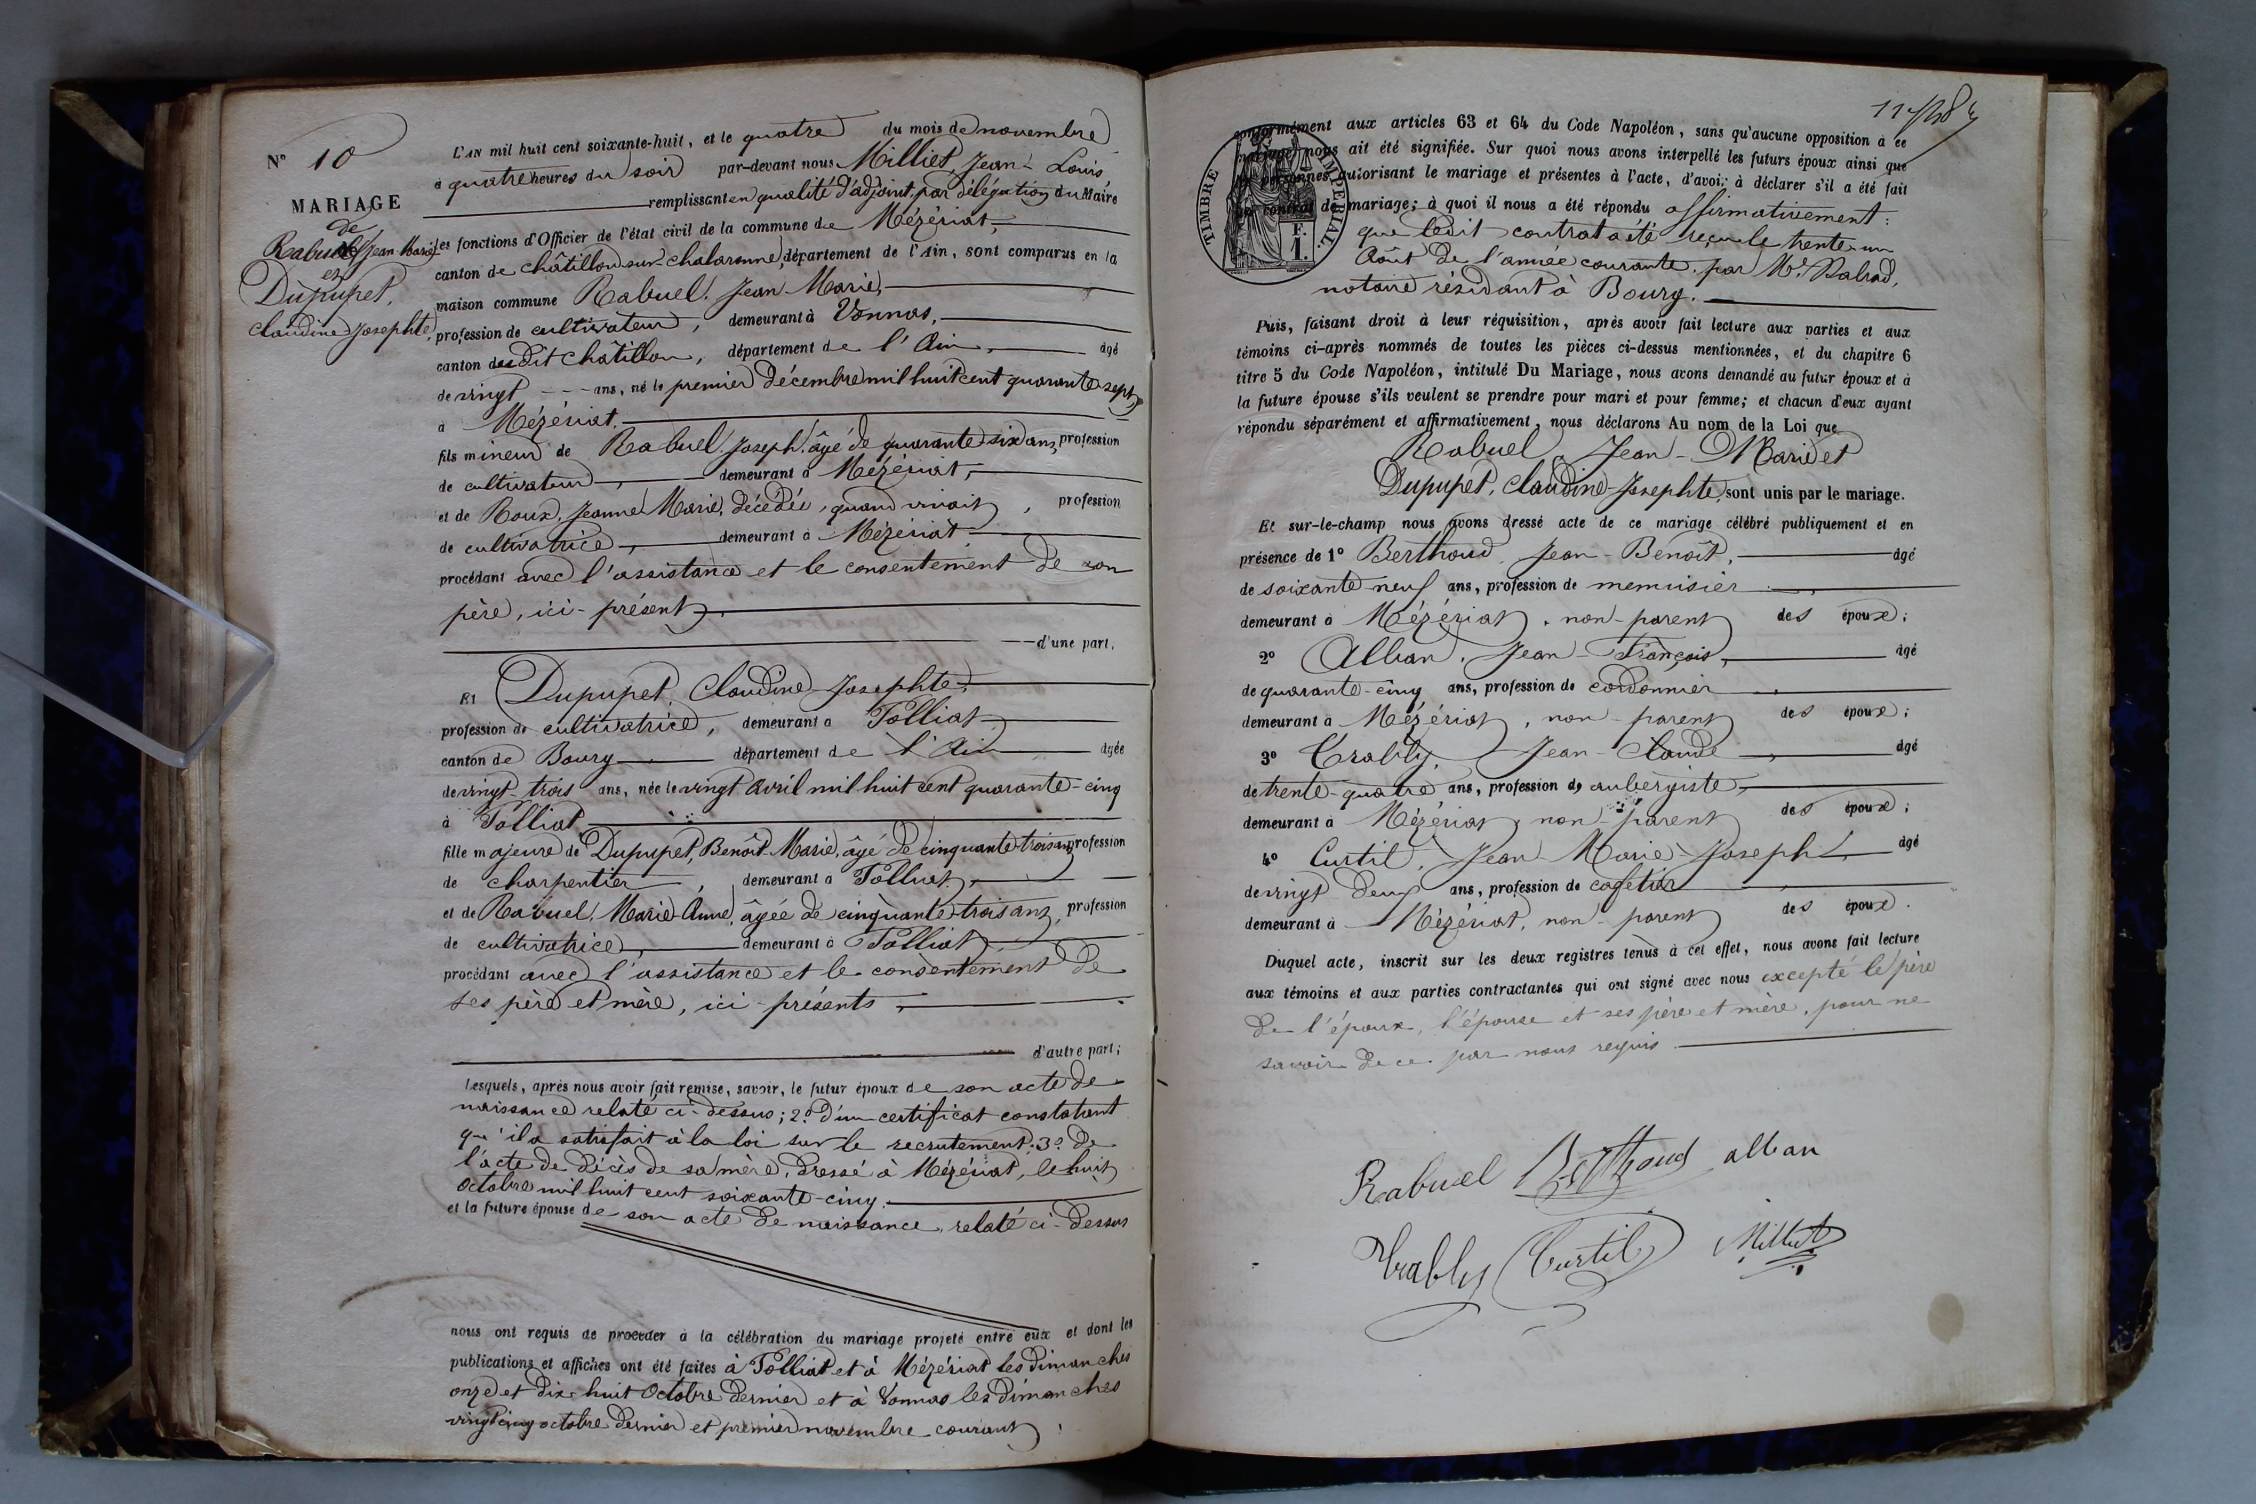 N° 10
MARIAGE
de
Rabuel Jean-Marie
et
Dupupet,
Claudine Josephte,
L'AN mil huit cent soixante-huit, et le quatre du mois de novembre
à quatre heures du soir par-devant nous Milliet, Jean-Louis,
remplissant en qualité d'adjoint, par délégation du Maire
les fonctions d'Officier de l'état civil de la commune de Mézériat,
canton de châtillon-sur-chalaronne, département de l'Ain, sont comparus en la
maison commune Rabuel, Jean-Marie,
profession de cultivateur, demeurant à Vonnas,
canton dudit châtillon, département de l'Ain, âgé
de vingt ans, né le premier décembre mil huit cent quarante-sept
à Mézériat,
fils mineur de Rabuel, Joseph, âgé de quarante-six ans, profession
de cultivateur, demeurant à Mézériat,
et de Roux, Jeanne Marie, décédée, quand vivait, profession
de cultivatrice, demeurant à Mézériat
procédant avec l'assistance et le consentement de son
père, ici-présent,
d'une part.
Et Dupupet, Claudine Josephte,
profession de cultivatrice, demeurant à Polliat
canton de Bourg département de l'Ain âgée
de vingt-trois ans, née le vingt avril mil huit cent quarante-cinq
à Polliat
fille majeure de Dupupet, Benoît-Marie, âgé de cinquante-trois ans, profession
de charpentier, demeurant à Polliat,
et de Rabuel, Marie-Anne, âgée de cinquante-trois ans, profession
de cultivatrice, demeurant à Polliat,
procédant avec l'assistance et le consentement de
ses père et mère, ici-présents,
d'autre part;
Lesquels, après nous avoir fait remise, savoir, le futur époux de son acte de
naissance relaté ci-dessus; 2° d'un certificat constatant
qu'il a satisfait à la loi sur le recrutement; 3° de
l'acte de décès de sa mère, dressé à Mézériat, le huit
octobre mil huit cent soixante-cinq.
et la future épouse de son acte de naissance, relaté ci-dessus
nous ont requis de procéder à la célébration du mariage projeté entre eux et dont les
publications et affiches ont été faites à Polliat et à Mézériat les dimanches
onze et dix-huit Octobre dernier et à Vonnas les dimanches
vingt cinq octobre dernier et premier novembre courant;
TIMBRE IMPERIAL.
F.
1.
conformément aux articles 63 et 64 du Code Napoléon, sans qu'aucune opposition à ce
mariage nous ait été signifiée. Sur quoi nous avons interpellé les futurs époux ainsi que
les personnes autorisant le mariage et présentes à l'acte, d'avoir à déclarer s'il a été fait
un contrat de mariage; à quoi il nous a été répondu affirmativement:
que ledit contrat a été reçu le trente-un
Août de l'année courante, par Me
notaire résidant à Bourg.
Puis, faisant droit à leur réquisition, après avoir fait lecture aux parties et aux
témoins ci-après nommés de toutes les pièces ci-dessus mentionnées, et du chapitre 6
titre 5 du Code Napoléon, intitulé Du Mariage, nous avons demandé au futur époux et à
la future épouse s'ils veulent se prendre pour mari et pour femme; et chacun d'eux ayant
répondu séparément et affirmativement, nous déclarons Au nom de la Loi que
Rabuel, Jean-Marie et
Dupupet, Claudine-Josephte, sont unis par le mariage.
Et sur-le-champ nous avons dressé acte de ce mariage célébré publiquement et en
présence de 1° Berthoud, Jean-Benoît, âgé
de soixante-neuf ans, profession de menuisier
demeurant à Mézériat, non-parent des époux;
2° Alban, Jean-François, âgé
de quarante-cinq ans, profession de cordonnier
demeurant à Mézériat, non-parent des époux;
3° Trably, Jean-Claude âgé
de trente-quatre ans, profession de aubergiste
demeurant à Mézériat, non-parent des époux;
4° Curtil, Jean-Marie-Joseph, âgé
de vingt-deux ans, profession de cafetier
demeurant à Mézériat, non-parent des époux.
Duquel acte, inscrit sur les deux registres tenus à cet effet, nous avons fait lecture
aux témoins et aux parties contractantes qui ont signé avec nous excepté le père
de l'époux, l'épouse et ses père et mère, pour ne
savoir de ce par nous requis.
Rabuel Berthoud alban
Trably Curtil Milliet